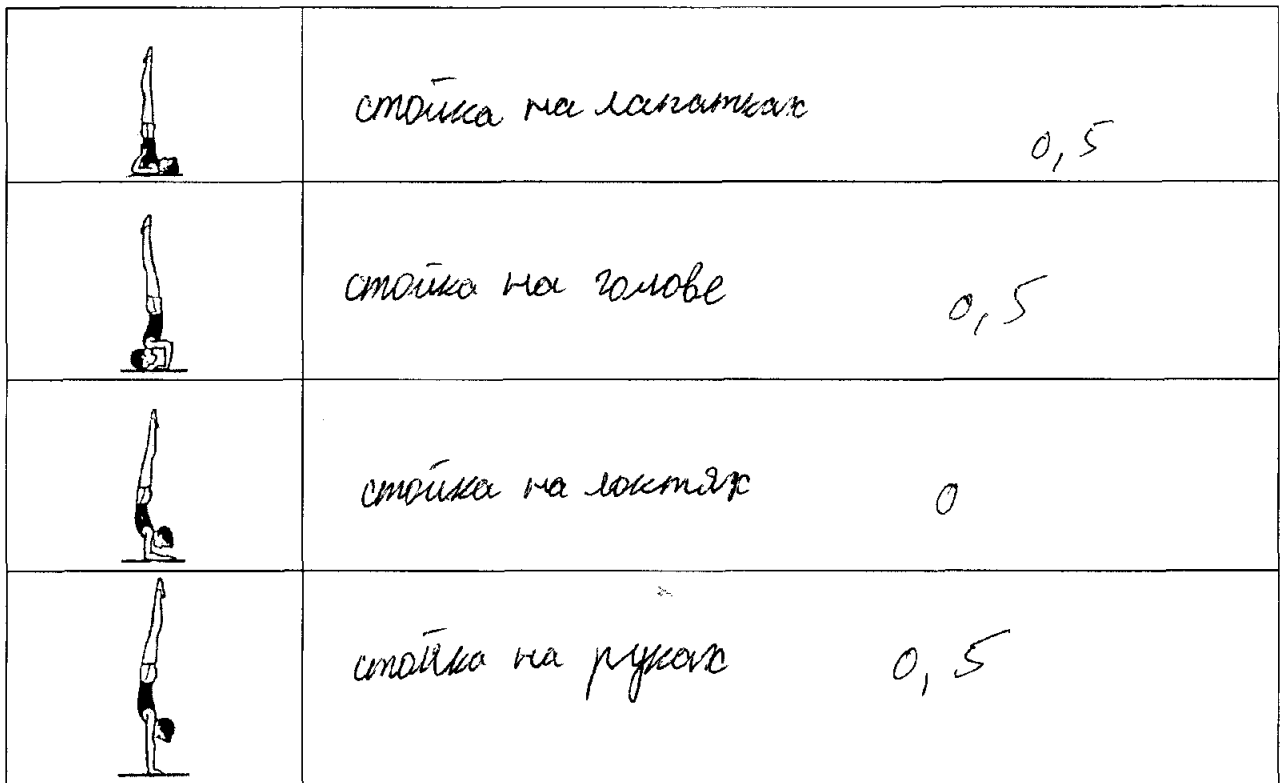 стойка на лапатках
0,5
стойка на голове
0,5
стойка на локтях
0
стойка на руках
0,5